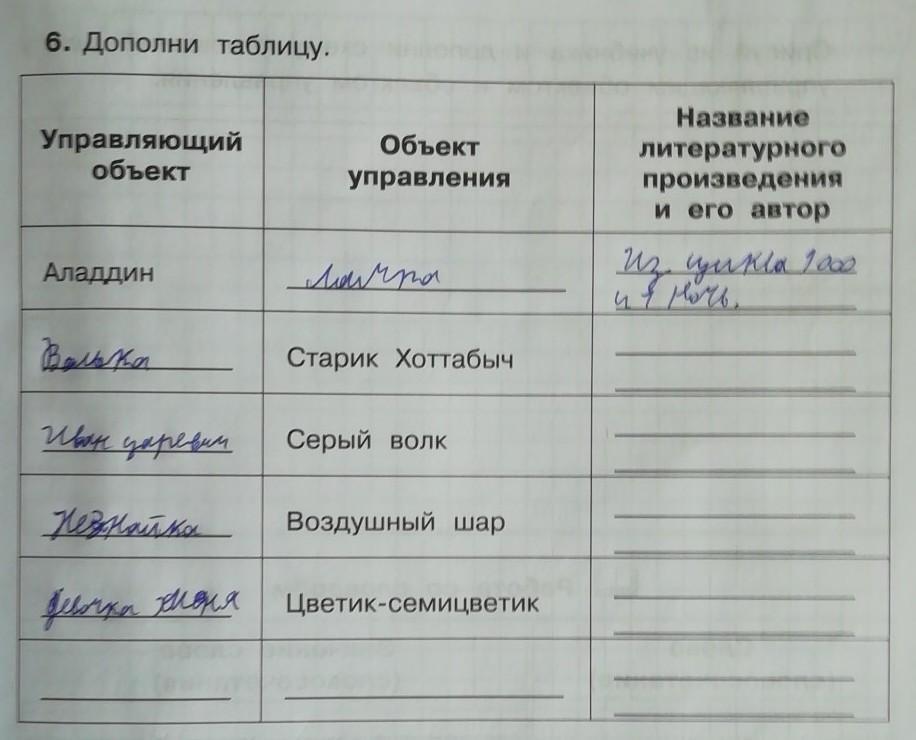 6. Дополни таблицу.
Управляющий объект
Объект управления
Название литературного произведения и его автор
Аладдин
лампа
Из цикла 1000
и 1 ночь.
Волька
Старик Хоттабыч
Иван царевич
Серый волк
Незнайка
Воздушный шар
девочка Женя
Цветик-семицветик